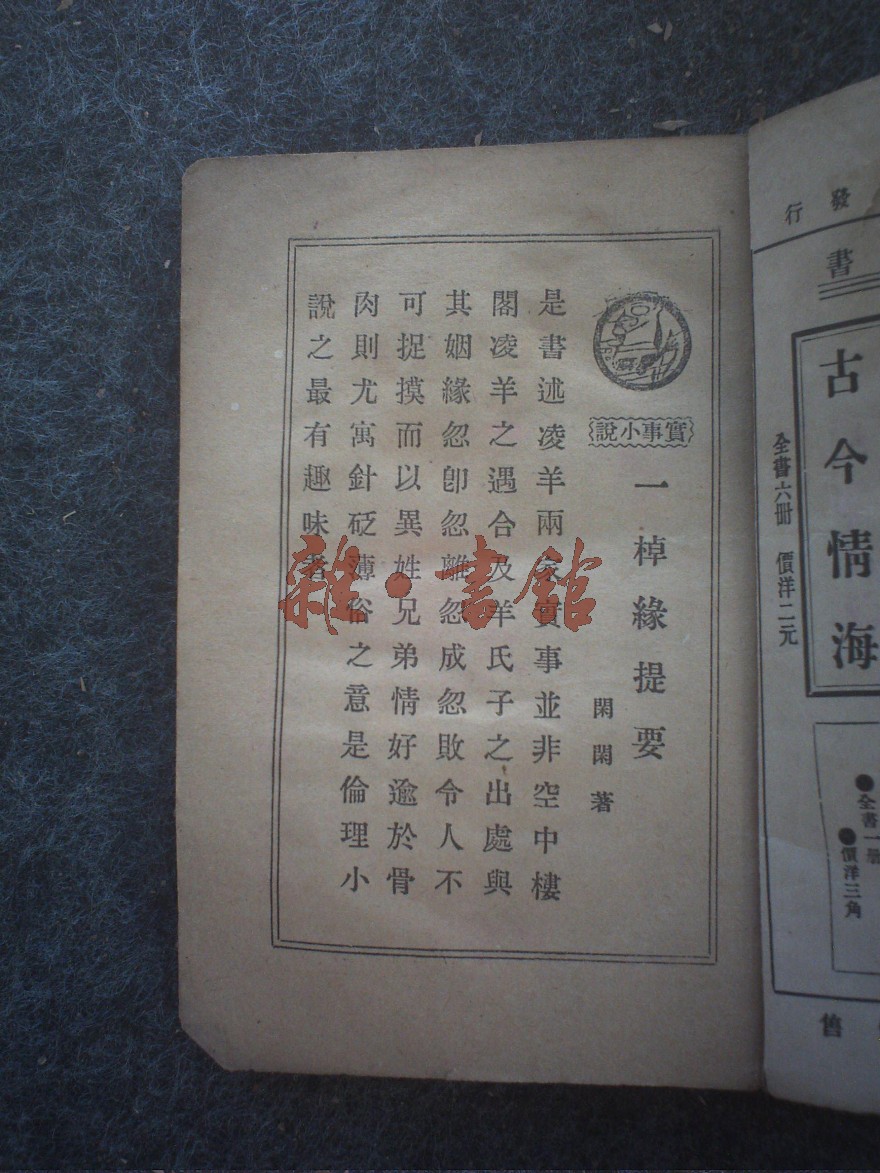 發行
書
古今情海
全書六冊 價洋二元
●全書一册
●價洋三角
售
實事小說
一棹緣提要
閑閑著
是書述凌羊兩家實事並非空中樓
閣凌羊之遇合及羊氏子之出處與
其姻緣忽卽忽離忽成忽敗令人不
可捉摸而以異姓兄弟情好逾於骨
肉則尤寓針砭薄俗之意是倫理小
說之最有趣味者
雜·書館